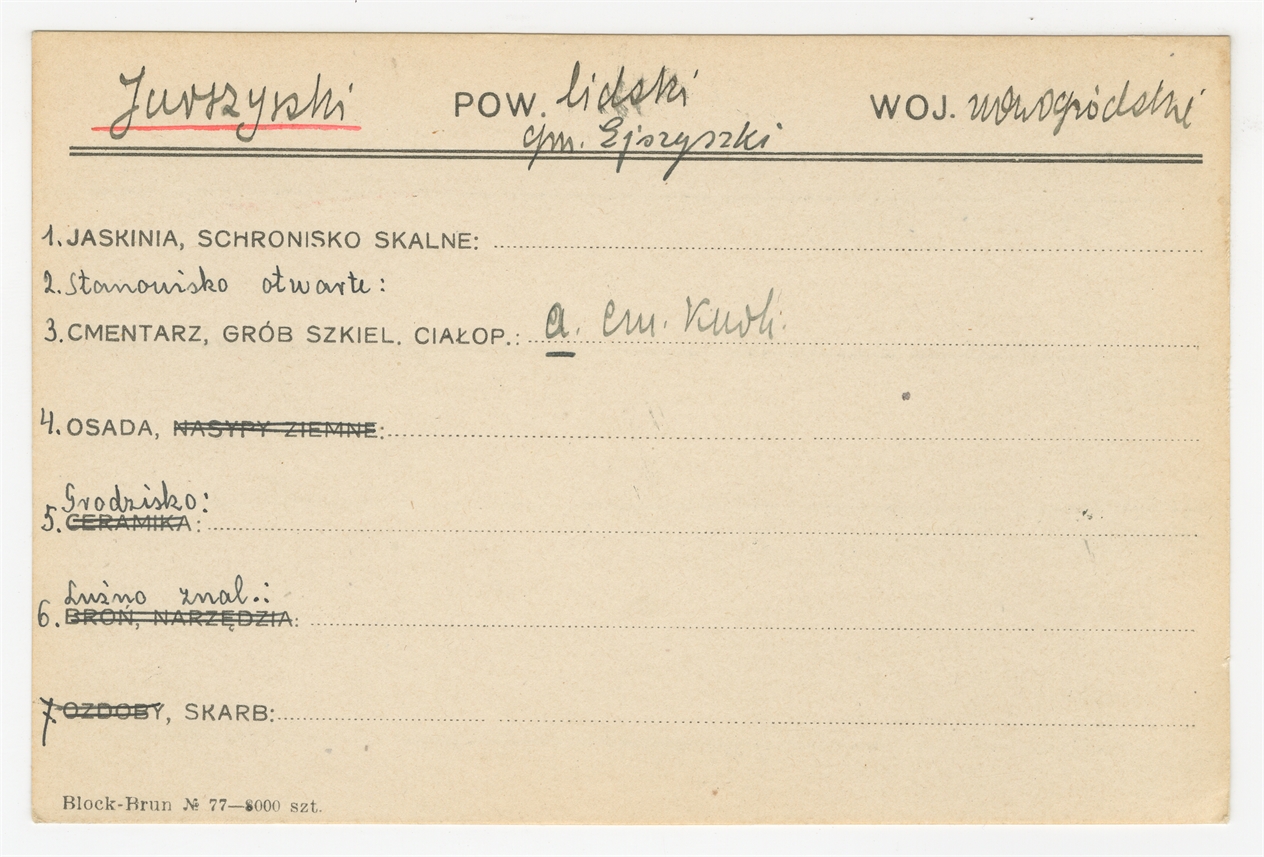 Jurszyszki POW. lidski WOJ. nowogródzkie
gm. Ejszyszki
1. JASKINIA, SCHRONISKO SKALNE:
2. Stanowisko otwarte:
3. CMENTARZ, GRÓB SZKIEL. CIAŁOP.: a. cm. Kurh.
4. OSADA, NASYPY ZIEMNE:
Grodzisko:
5. CERAMIKA:
Luźno znal.:
6. BROŃ, NARZĘDZIA:
7. OZDOBY, SKARB:
Block-Brun № 77—8000 szt.